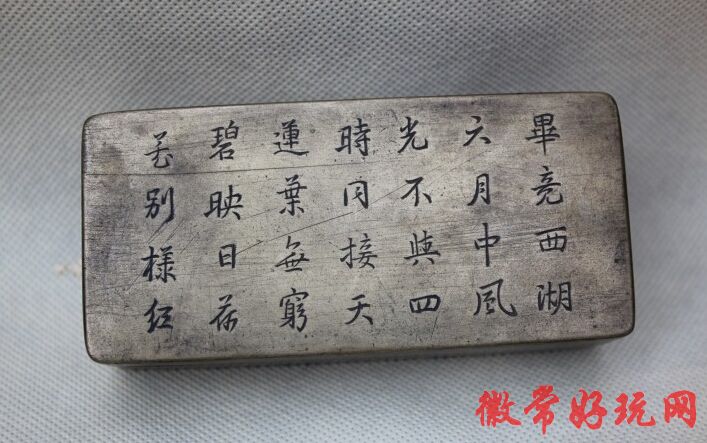 畢竟西湖
六月中風
光不與四
時同接天
蓮葉無窮
碧映日荷
花別樣紅
徽常好玩网